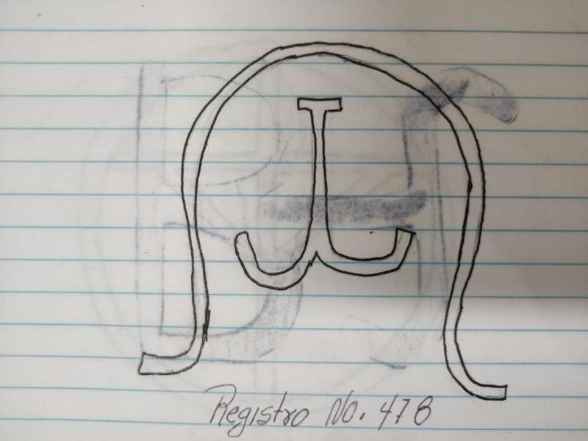 Registro No. 478